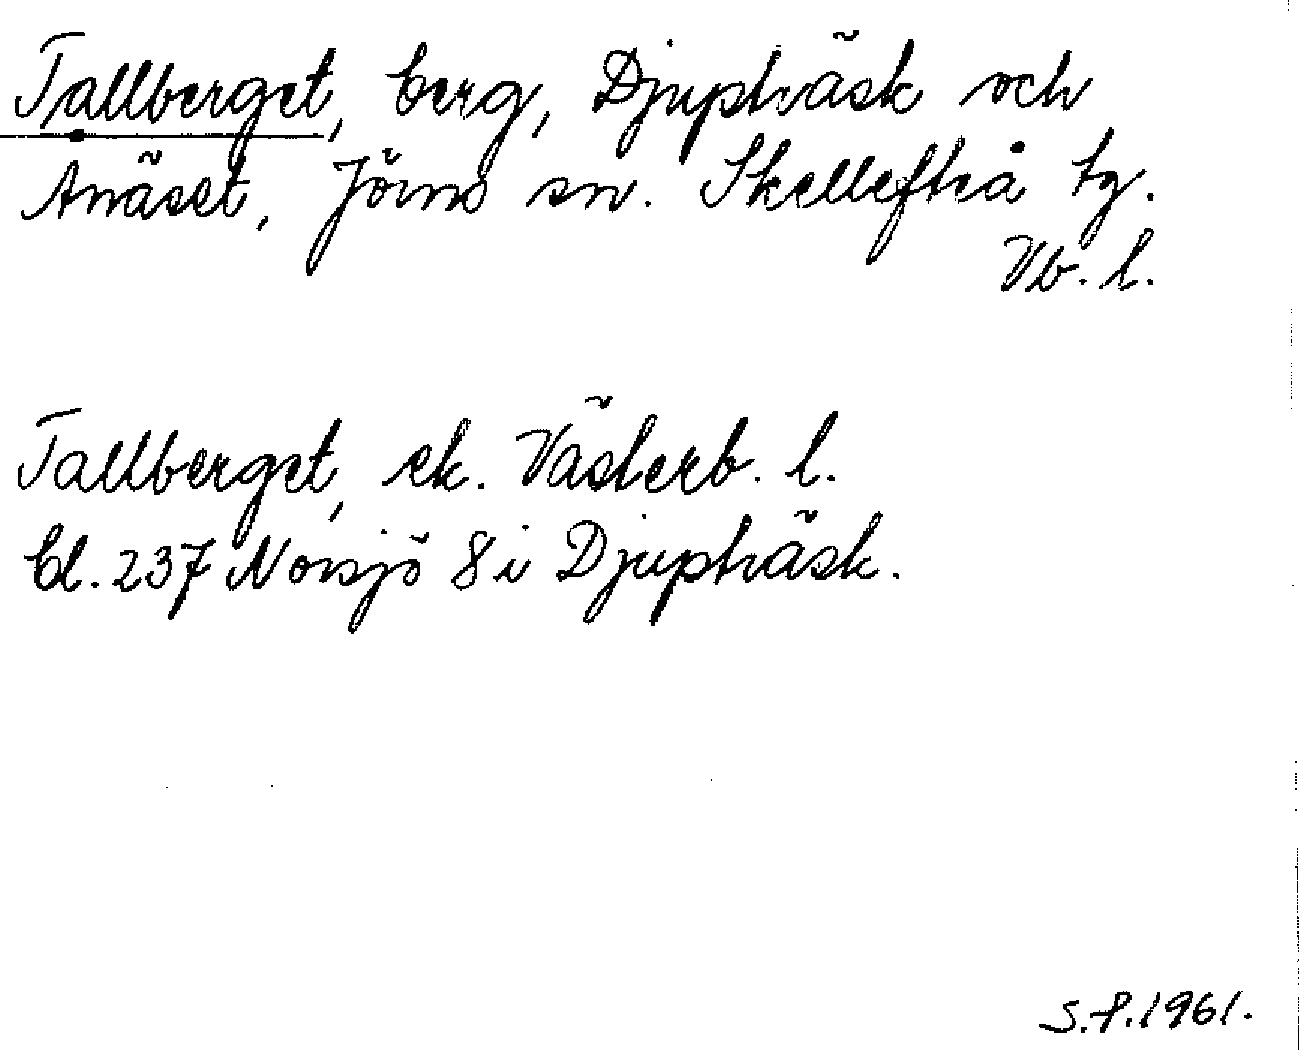 Tallberget, berg, Djupträsk och
Anäset, Jörns sn. Skellefteå tg.
Vb. l.
Tallberget, ek. Västerb. l.
bl. 237 Norsjö 8 i Djupträsk.
S.P. 1961.